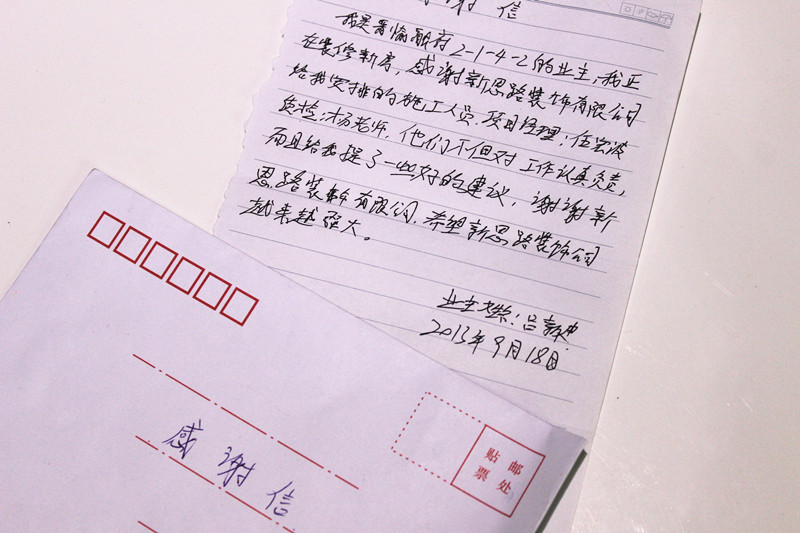 谢信
我是晋愉融府2-1-4-2的业主,我正
在装修新房,感谢新思路装饰有限公司
给我安排的施工人员,项目经理:任宏波
质检:杨老师,他们不但对工作认真负责,
而且给我提了一些好的建议,谢谢新
思路装饰有限公司,希望新思路装饰公司
越来越强大。
业主姓名:吕
2013年9月18日
感谢信
贴邮
票处